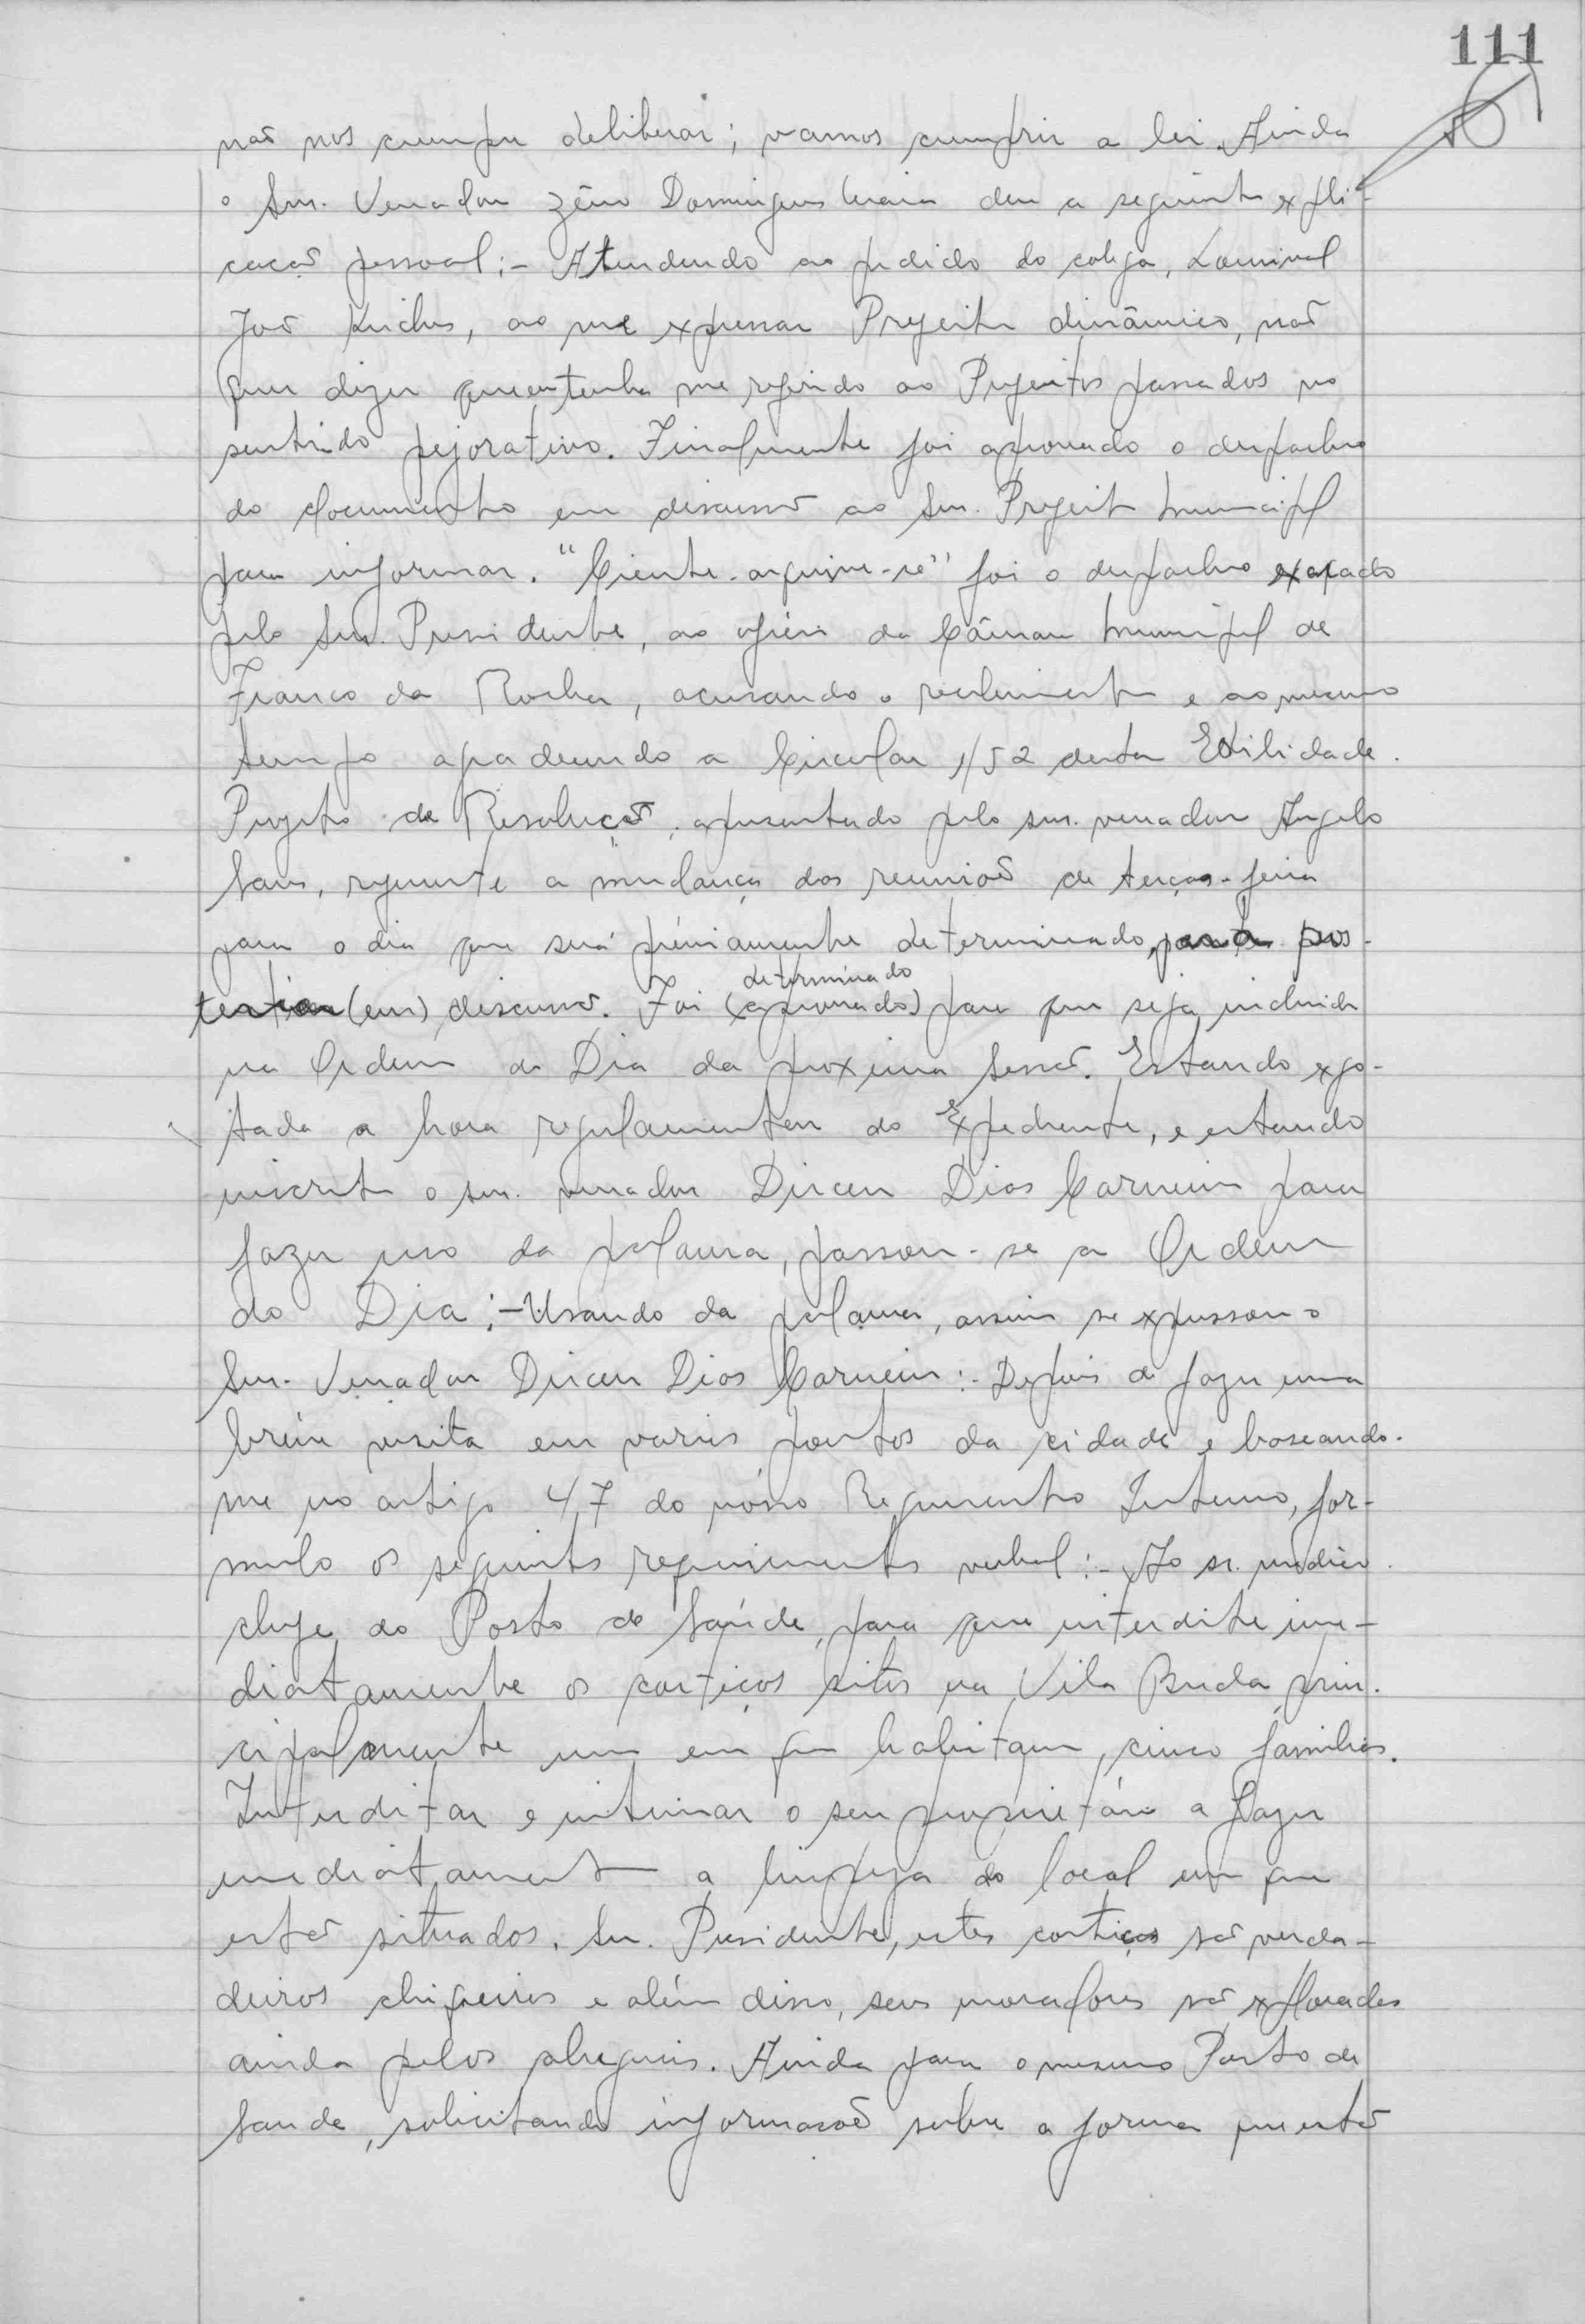 111
não nos cumpre deliberar; vamos cumprir a lei. Ainda
o Snr. Vereador Zêno Domingues Maia deu a seguinte expli-
cação pessoal:- Atendendo ao pedido do colega, Lourival
João, ao me expressar Prefeito dinâmico, não
quer dizer que eu tenha me referido ao Prefeitos passados no
sentido pejorativo. Finalmente foi aprovado o despacho
do documento em discussão ao Snr. Prefeito Municipal
para informar. "Ciente-arquive-se" foi o despacho exarado
pelo Snr. Presidente, ao ofício da Câmara Municipal de
Franco da Rocha, acusando o recebimento e ao mesmo
tempo agradecendo a Circular 1/52 desta Edilidade.
Projeto de Resolução, apresentado pelo snr. vereador Angelo
referente a mudança das reuniões de terças-feira
para o dia que será préviamente determinado, posto pos-
(em) discussão. Foi (aprovado) determinado para que seja incluido
na Ordem do Dia da proxima Sessão. Estando exgo-
tada a hora regulamentar do Expediente, e estando
inscrito o snr. vereador Dirceu Dias Carneiro para
fazer uso da palavra, passou-se a Ordem
do Dia:- Usando da palavra, assim se expressou o
Snr. Vereador Dirceu Dias Carneiro:- Depois de fazer uma
bréve visita em varios pontos da cidade e baseando-
me no artigo 47 do nósso Regimento Interno, for-
mulo os seguintes requerimentos verbal:- Ao sr. médico
chefe do Posto de Saúde, para que interdite ime-
diatamente os cortiços sitos na Vila Buda, prin-
cipalmente um em que habitam, cinco familias.
Interditar e intimar o seu proprietário a fazer
imediatamente a limpeza do local em que
estão situados. Snr. Presidente, estes cortiços são verda-
deiros chiqueiros e além disso, seus moradores são explorados
ainda pelos alugueis. Ainda para o mesmo Posto de
Saude, solicitando informações sobre a forma que estão